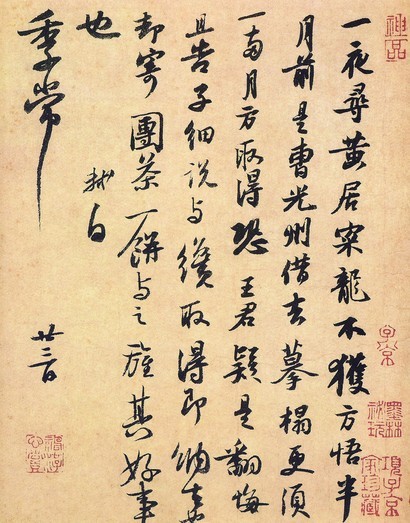 一夜尋黄居寀龍不獲方悟半
月前是曹光州借去摹搨更須
一兩月方取得恐王君疑是翻悔
且告子細說與纔取得即納去
却寄團茶一餅與之旌其好事
也
軾白
季常
廿三日
神品
子京
墨林祕玩
項子京家珍藏